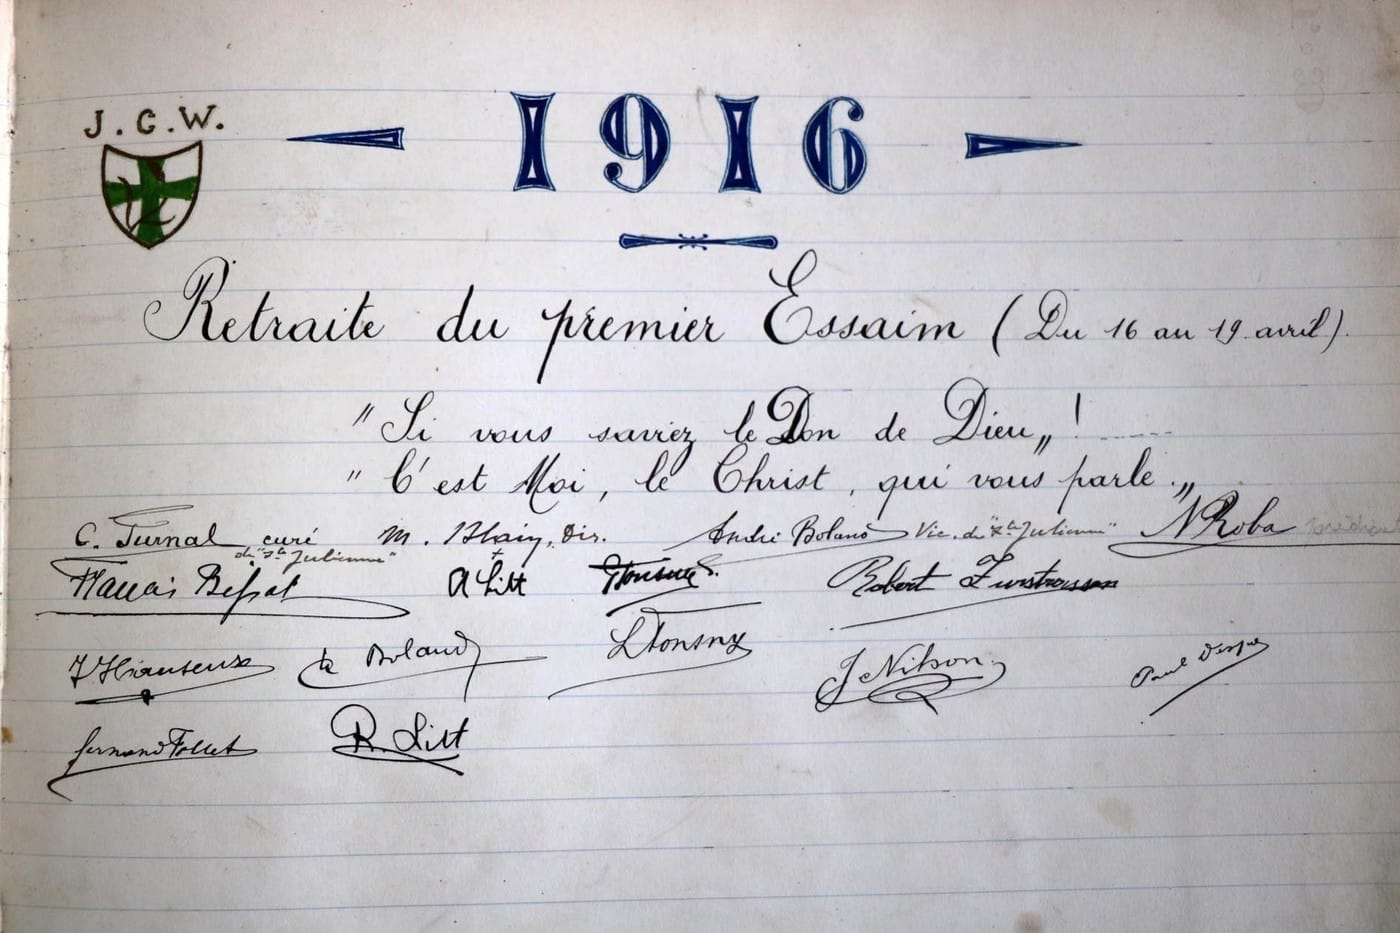 J. C. W.
1916
Retraite du premier Essaim (Du 16 au 19 avril).
" Si vous saviez le Don de Dieu „ !
" C'est Moi, le Christ, qui vous parle. „
C. Turnal curé M. Blain, Dir. André Boland Vic. de "Ste Julienne" N Roba
de "Ste Julienne"
A Litt Robert
Boland L Tonsny J Nihon Paul
Fernand Follet R. Litt